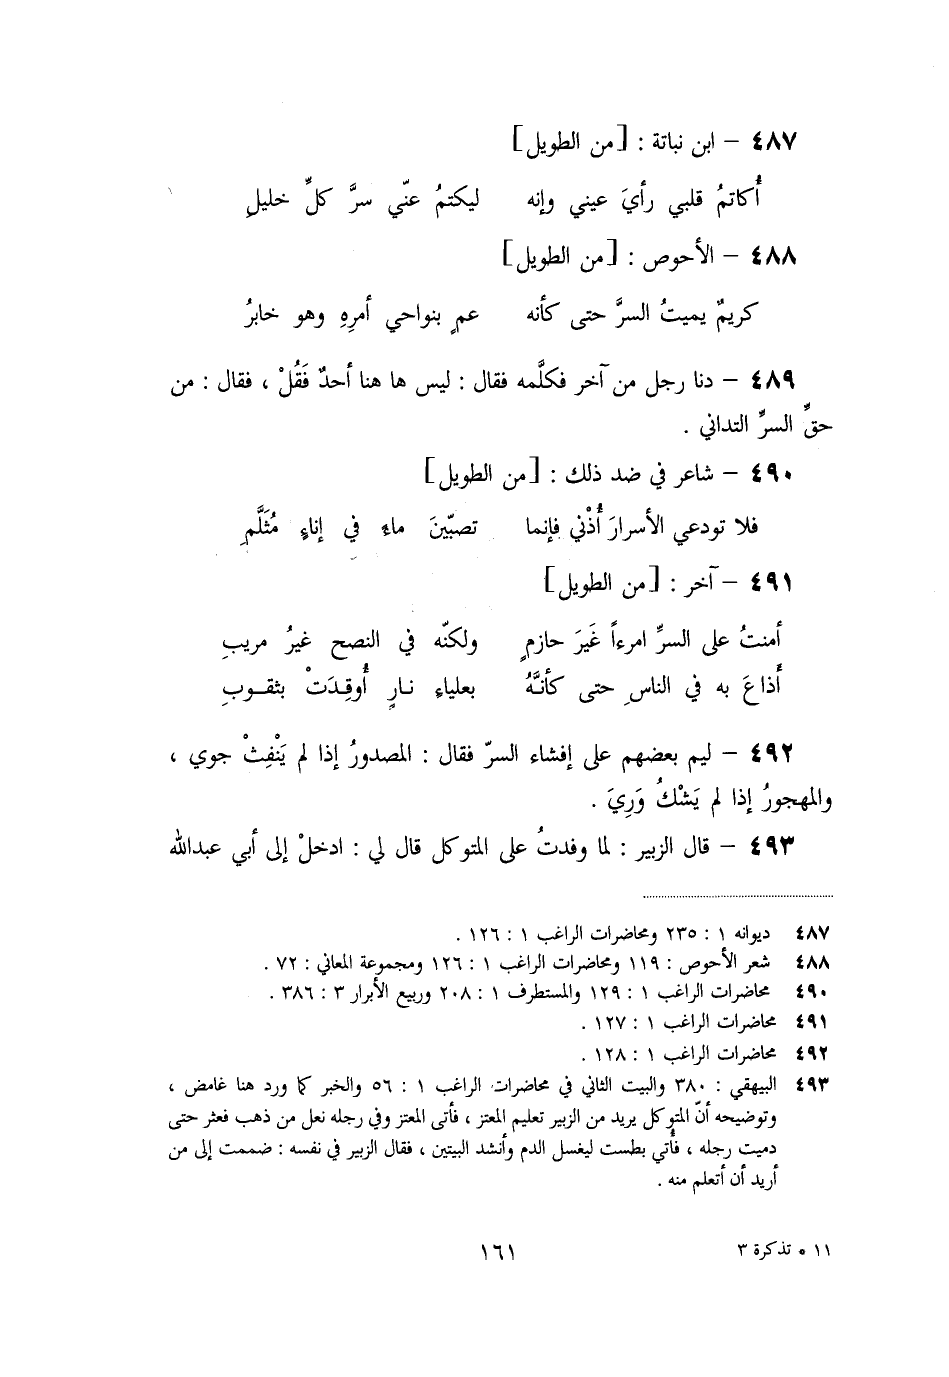 ٤٨٧ – ابن نباتة : [من الطويل]
أُكاتمُ قلبي رأيَ عيني وإنه ليكتمُ عنّي سرَّ كلِّ خليلِ
٤٨٨ – الأحوص : [من الطويل]
كريمٌ يميتُ السرَّ حتى كأنه عمٍ بنواحي أمرِهِ وهو خابرُ
٤٨٩ – دنا رجل من آخر فكلَّمه فقال : ليس ها هنا أحدٌ فَقُلْ ، فقال : من
حقِّ السرِّ التداني .
٤٩٠ – شاعر في ضد ذلك : [من الطويل]
فلا تودعي الأسرارَ أُذْني فإنما تصبّينَ ماء في إناءٍ مُثَلَّمِ
٤٩١ – آخر : [من الطويل]
أمنتُ على السرِّ امرءاً غَيرَ حازمٍ ولكنّه في النصح غيرُ مريبِ
أذاعَ به في الناسِ حتى كأنَّهُ بعلياءِ نارٍ أُوقِدَتْ بثقوبِ
٤٩٢ – ليم بعضهم على إفشاء السرّ فقال : المصدورُ إذا لم يَنْفِثْ جوي ،
والمهجورُ إذا لم يَشْكُ وَرِيَ .
٤٩٣ – قال الزبير : لما وفدتُ على المتوكل قال لي : ادخلْ إلى أبي عبدالله
٤٨٧ ديوانه ١ : ٢٣٥ ومحاضرات الراغب ١ : ١٢٦ .
٤٨٨ شعر الأحوص : ١١٩ ومحاضرات الراغب ١ : ١٢٦ ومجموعة المعاني : ٧٢ .
٤٩٠ محاضرات الراغب ١ : ١٢٩ والمستطرف ١ : ٢٠٨ وربيع الأبرار ٣ : ٣٨٦ .
٤٩١ محاضرات الراغب ١ : ١٢٧ .
٤٩٢ محاضرات الراغب ١ : ١٢٨ .
٤٩٣ البيهقي : ٣٨٠ والبيت الثاني في محاضرات الراغب ١ : ٥٦ والخبر كما ورد هنا غامض ،
وتوضيحه أنّ المتوكل يريد من الزبير تعليم المعتز ، فأتى المعتز وفي رجله نعل من ذهب فعثر حتى
دميت رجله ، فأُتي بطست ليغسل الدم وأنشد البيتين ، فقال الزبير في نفسه : ضممت إلى من
أريد أن أتعلم منه .
١١ ٠ تذكرة ٣ ١٦١